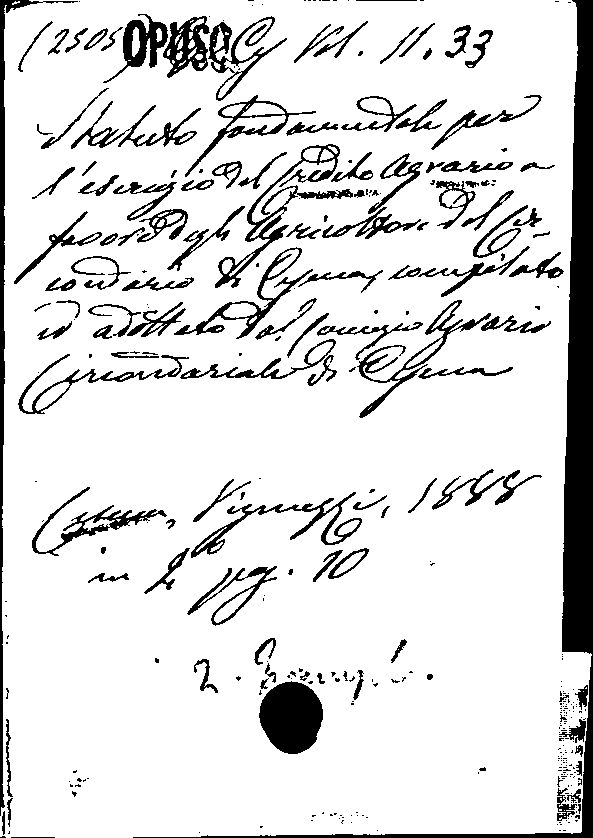 (2505) OPUSC Vol. 11.33
Statuto fondamentale per
l'esercizio del Credito Agrario a
favore degli Agricoltori del Cir-
condario di Cesena, compilato
ed adottato dal Comizio Agrario
Circondariale di Cesena
Cesena, Vignuzzi, 1888
in 4° pag. 10
2.